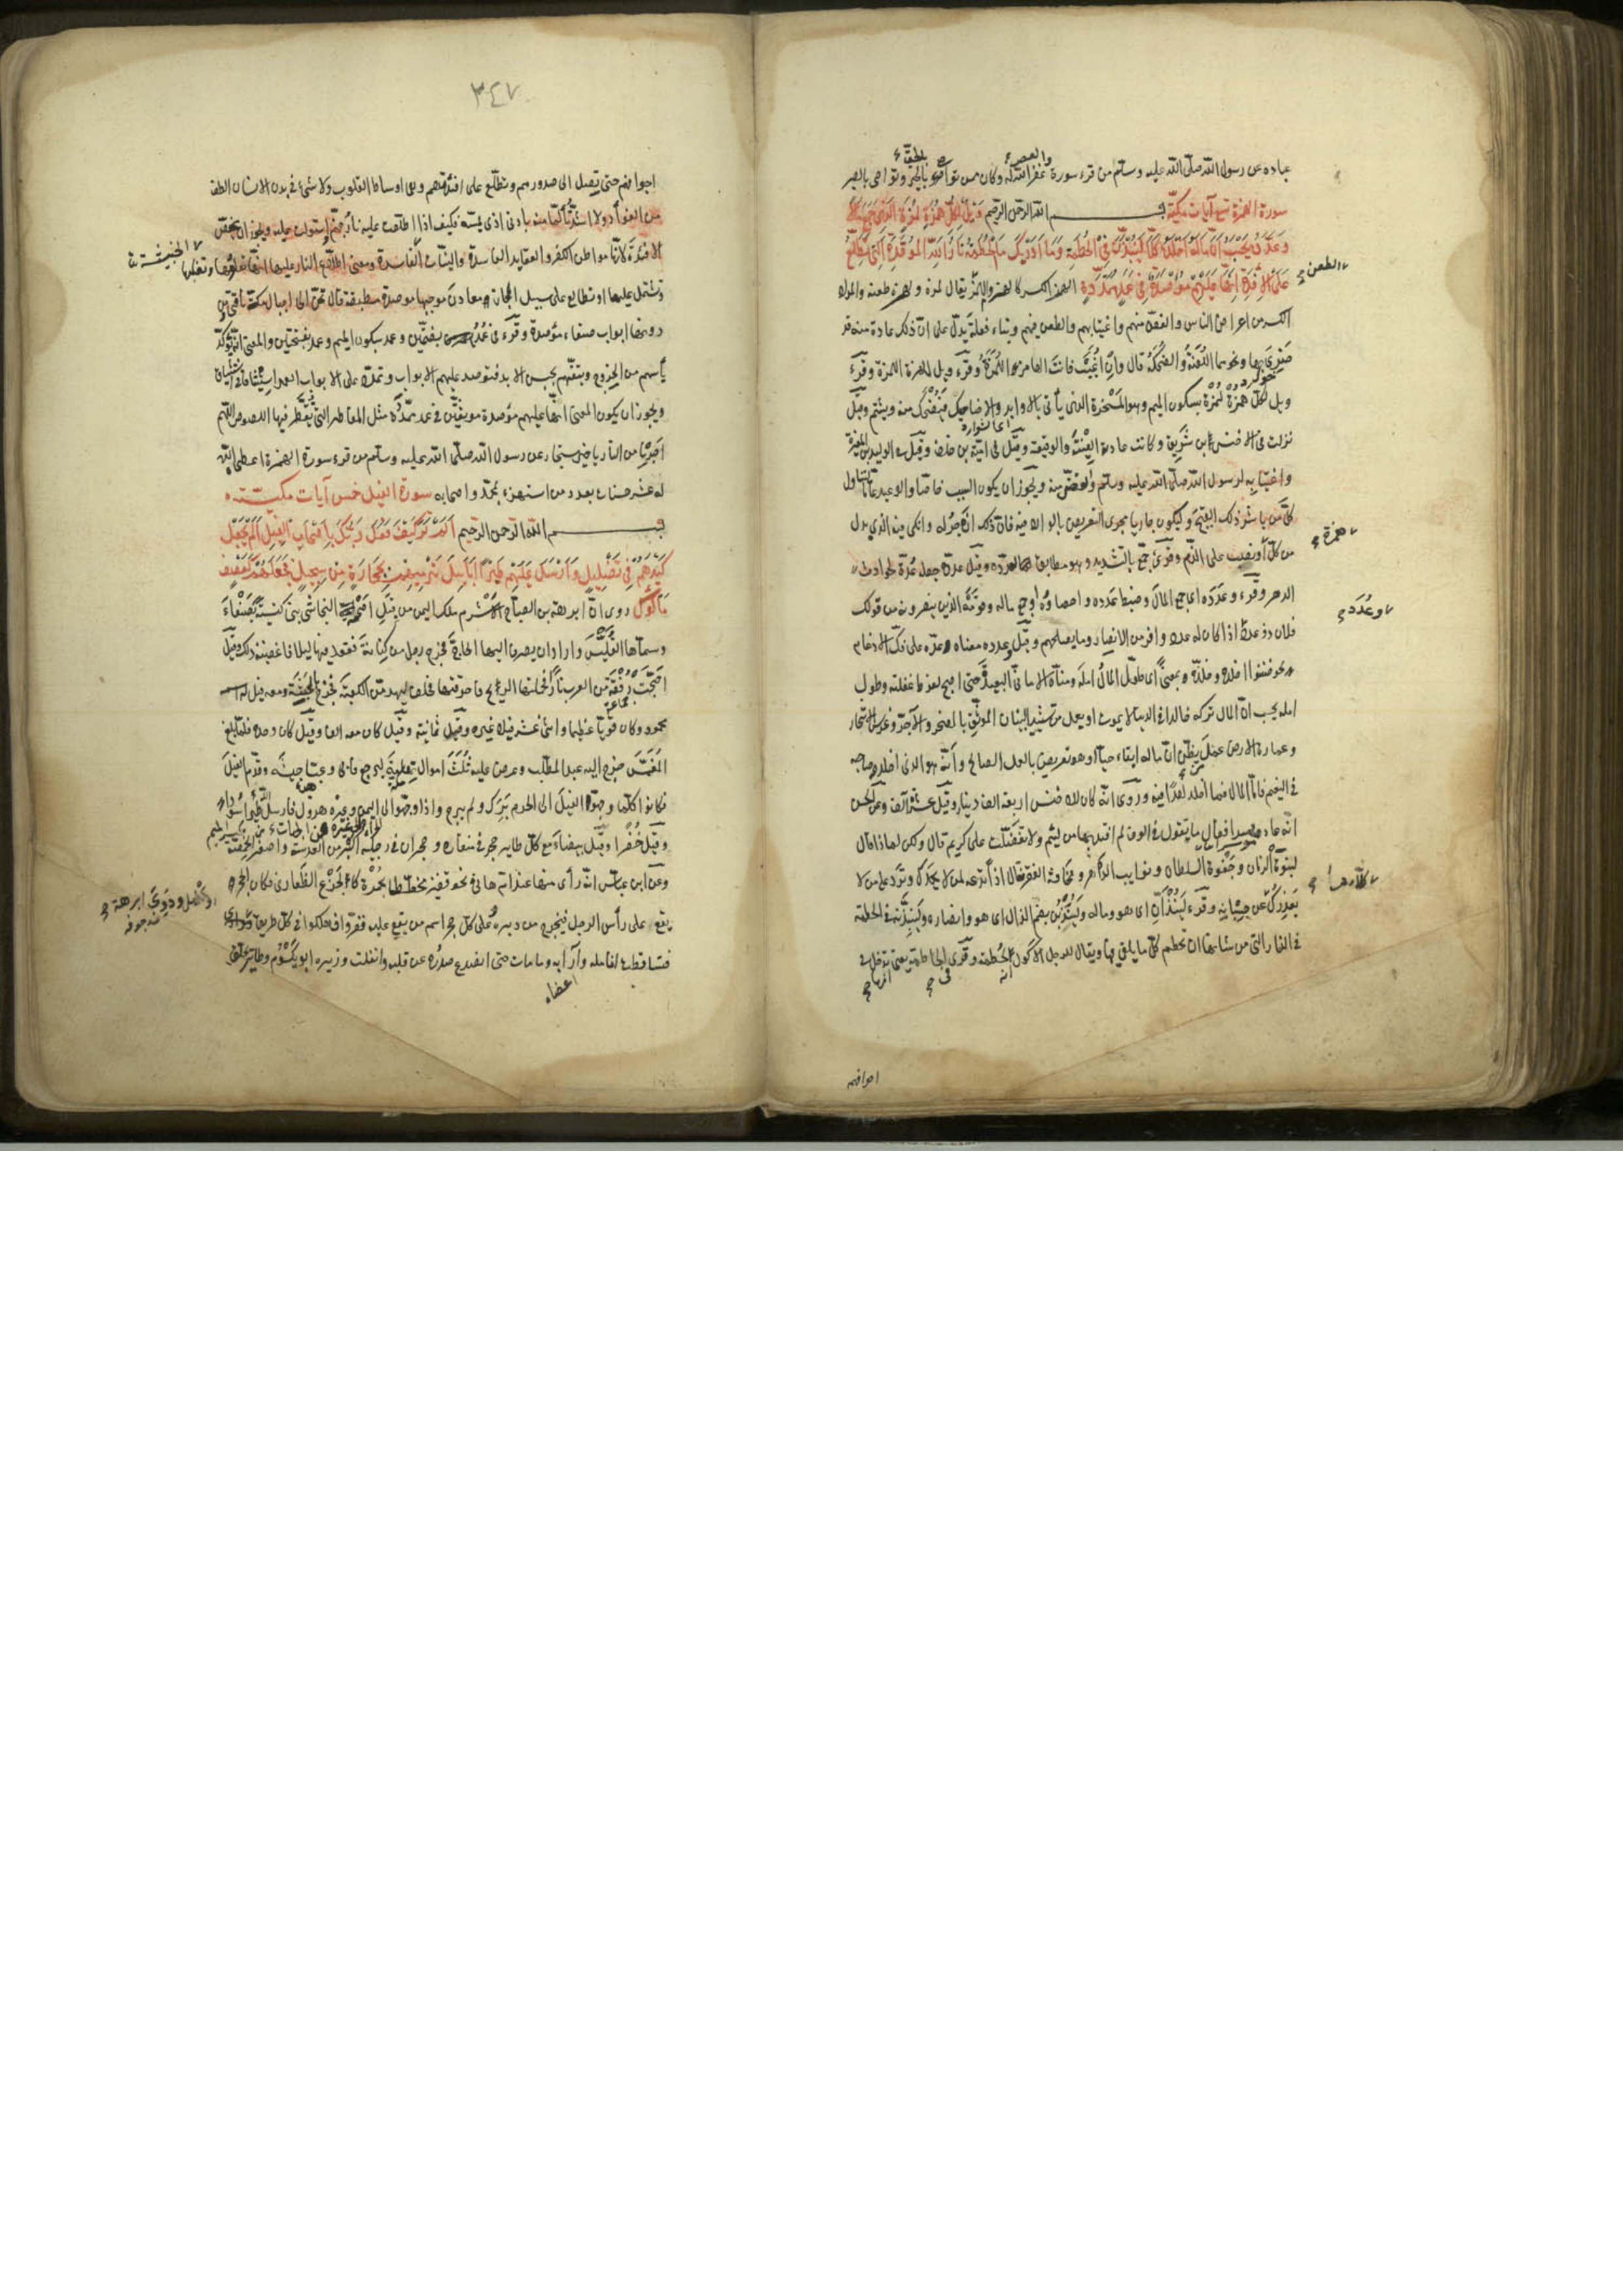 عباده عن رسول الله صلى الله عليه وسلم من قرء سورة والعصر غفر الله له وكان ممن تواصوا بالحق وتواصى بالصبر
سورة الهمزة تسع آيات مكية بسم الله الرحمن الرحيم ويل لكل همزة لمزة الذي جمع مالا
وعدده يحسب ان ماله اخلده كلا لينبذن في الحطمة وما ادريك ما الحطمة نار الله الموقدة التي تطلع
على الافئدة انها عليهم مؤصدة في عمد ممددة الهمز الكسر كالهزم واللمز يقال لمزه ولهزه طعنه والمراد
الكسر من اعراض الناس والغض منهم واغتيابهم والطعن فيهم وبناء فعلة يدل على ان ذلك عادة منه قد
ضرى بها ونحوهما اللعنة والضحكة قال وان اغيب فانت الهامز اللمزة وقرء ويل للهمزة اللمزة وقرء
ويل لكل همزة لمزة بسكون الميم وهو المسخرة الذي يأتي بالاوابد والاضاحيك فيضحك منه ويشتم وقيل
نزلت في الاخنس بن شريق وكانت عادته الغيبة والوقيعة وقيل في امية بن خلف وقيل في الوليد بن المغيرة
واغتيابه لرسول الله صلى الله عليه وسلم وغضه منه ويجوز ان يكون السبب خاصا والوعيد عاما ليتناول
كل من باشر ذلك القبيح وليكون جاريا مجرى التعريض بالوارد فيه فان ذلك ازجر له وانكى فيه الذي بدل
من كل او نصب على الذم وقرئ جمع بالتشديد وهو مطابق لعدده وقيل عدده جعله عدة لحوادث
الدهر وقرء وعدده اي جمع المال وضبط عدده واحصاه او جمع ماله وقومه الذين ينصرونه من قولك
فلان ذو عدد اذا كان له عدد وافر من الانصار وما يصلحهم وقيل وعدده معناه وعده على فك الادغام
نحو ضننوا اخلده وخلده بمعنى اي طول المال امله ومناه الاماني البعيدة حتى اصبح لفرط غفلته وطول
امله يحسب ان المال تركه خالدا في الدنيا لا يموت او يعمل من تشييد البنيان الموثق بالصخر والآجر وغرس الاشجار
وعمارة الارض عمل من يظن ان ماله ابقاه حيا او هو تعريض بالعمل الصالح وانه هو الذي اخلد صاحبه
في النعيم فاما المال فما اخلد احدا فيه وروى انه كان للاخنس اربعة الف دينار وقيل عشرة آلاف وعن الحسن
انه عاد موسرا فقال ما تقول في الوف لم افتد بها من لئيم ولا تفضلت على كريم قال ولكن لماذا قال
لنبوة الزمان وجفوة السلطان ونوايب الدهر ومخافة الفقر قال اذا تدعه لمن لا يحمدك وترد على من لا
يعذرك عن حسبانه وقرء لينبذان اي هو وماله ولينبذن بضم الذال اي هو وانصاره ولينبذنه في الحطمة
في النار التي من شانها ان تحطم كل ما يلقى فيها ويقال للرجل الاكول انه لحطمة وقرئ الحاطمة يعني تدخل في
الطعن
همزة
وعدده
كلا ردع
اجوافهم
٣٤٧
اجوافهم حتى تصل الى صدورهم وتطلع على افئدتهم وهي اوساط القلوب ولا شيء في بدن الانسان الطف
من الفؤاد ولا اشد تألما منه بادنى اذى يمسه فكيف اذا اطلعت عليه نار جهنم واستولت عليه ويجوز ان يخص
الافئدة لانها مواطن الكفر والعقايد الفاسدة والنيات الخبيثة ومعنى اطلاع النار عليها انها تعلوها وتغلبها
وتشتمل عليها او تطالع على سبيل المجاز معادن موجبها موصدة مطبقة قال تحن الى اجبال مكة ناقتي ومن
دونها ابواب صنعاء مؤصدة وقرء في عمد بضمتين وعمد بسكون الميم وعمد بفتحتين والمعنى انه يؤكد
يأسهم من الخروج وتيقنهم بحبس الابد فتوصد عليهم الابواب وتمدد على الابواب العمد استيثاقا في استيثاق
ويجوز ان يكون المعنى انها عليهم مؤصدة موثقين في عمد ممددة مثل المقاطر التي تقطر فيها اللصوص اللهم
اجرنا من النار يا خير مستجار عن رسول الله صلى الله عليه وسلم من قرء سورة الهمزة اعطاه الله
له عشر حسنات بعدد من استهزء بمحمد واصحابه سورة الفيل خمس آيات مكية
بسم الله الرحمن الرحيم الم تر كيف فعل ربك باصحاب الفيل الم يجعل
كيدهم في تضليل وارسل عليهم طيرا ابابيل ترميهم بحجارة من سجيل فجعلهم كعصف
مأكول روى ان ابرهة بن الصباح الاشرم ملك اليمن من قبل اصحمة النجاشي بنى كنيسة بصنعاء
وسماها القليس واراد ان يصرف اليها الحاج فخرج رجل من كنانة فقعد فيها ليلا فاغضبه ذلك وقيل
اججت رفقة من العرب نارا فحملتها الريح فاحرقتها فحلف ليهدمن الكعبة فخرج بالحبشة ومعه فيل له اسمه
محمود وكان قويا عظيما واثنى عشر فيلا غيره وقيل ثمانية وقيل كان معه الف وقيل كان وحده فلما بلغ
المغمس خرج اليه عبد المطلب وعرض عليه ثلث اموال تهامة ليرجع فابى وعبا جيشه وقدم الفيل
فكانوا كلما وجهوه الى الحرم برك ولم يبرح واذا وجهوه الى اليمن وغيره هرول فارسل الله طيرا سوداء
وقيل خضرا وقيل بيضاء مع كل طاير حجر في منقاره وحجران في رجليه اكبر من العدسة واصغر من الحمصة
وعن ابن عباس انه رأى منها عند ام هاني نحو قفيز مخططة بحمرة كالجزع الظفاري فكان الحجر
يقع على رأس الرجل فيخرج من دبره وعلى كل حجر اسم من يقع عليه ففروا فهلكوا في كل طريق
فتساقطت انامله وآرابه وما مات حتى انصدع صدره عن قلبه وانفلت وزيره ابو يكسوم وطاير يحلق
الخبيثة
ودوي ابرهة
اعضاء